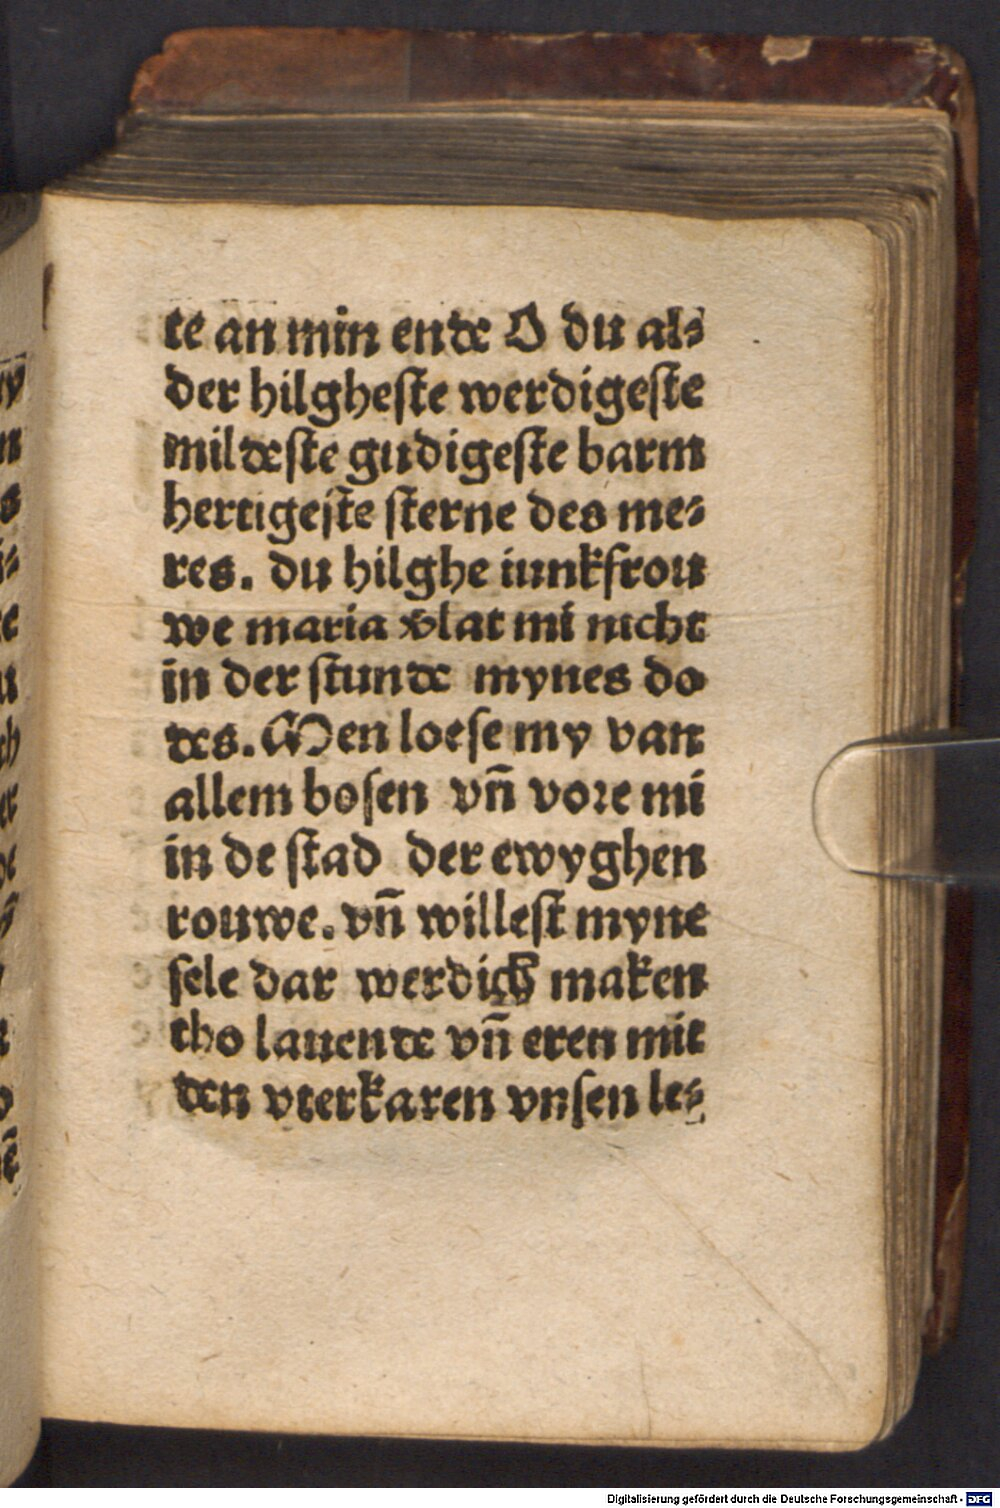 te an min ende O du al⸗
der hilgheste werdigeste
mildeste gudigeste barm
hertigeste sterne des me⸗
res. du hilghe iunkfrou
we maria vlat mi nicht
in der stunde mynes do
des. Men loese my van
allem bosen vñ vore mi
in de stad der ewyghen
rouwe. vñ willest myne
sele dar werdich maken
tho lauende vñ eren mit
den vterkaren vnsen le⸗
Digitalisierung gefördert durch die Deutsche Forschungsgemeinschaft - DFG